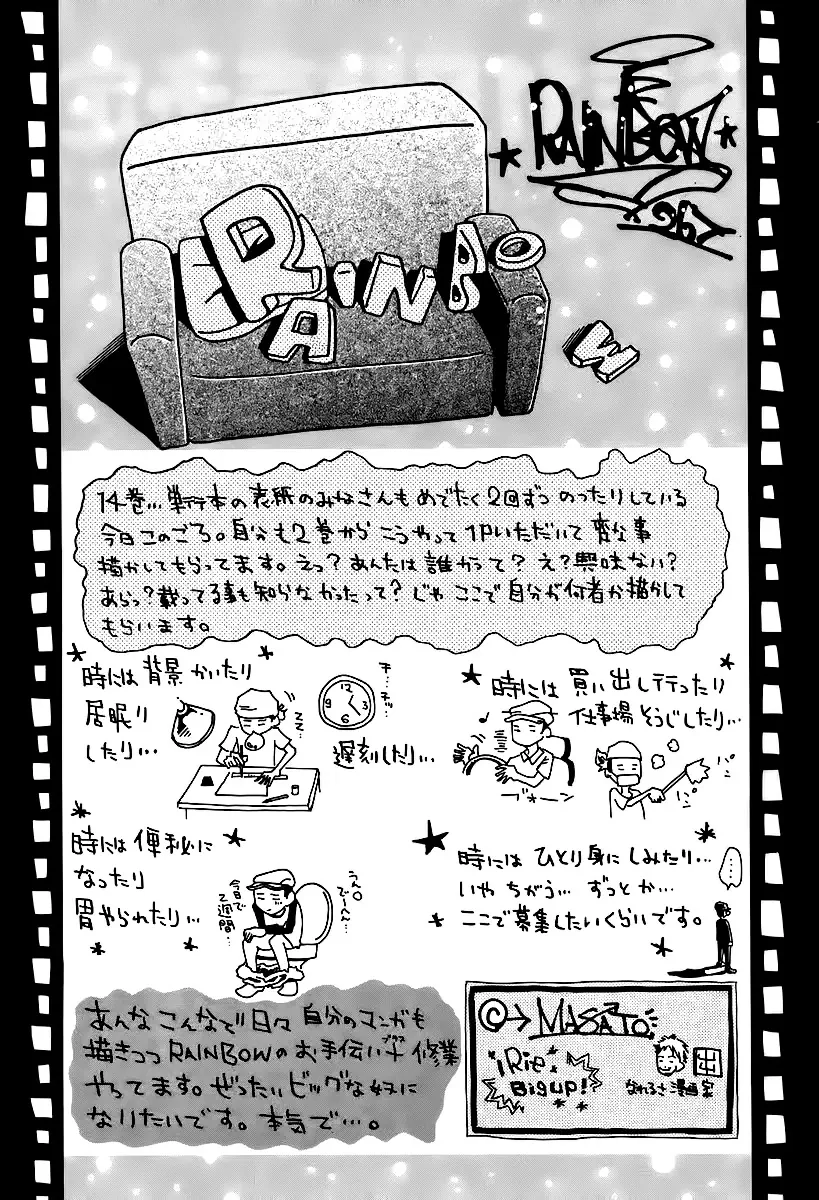 RAINBOW
267
RAINBO
W
14巻… 単行本の表紙のみなさんも めでたく2回ずつ のったりしている
今日このごろ。自分も2巻から こうやって 1Pいただいて 変な事
描かしてもらってます。えっ? あんたは誰かって? え? 興味ない?
あらっ? 載ってる事も知らなかったって? じゃ ここで 自分が何者か描かして
もらいます。
時には 背景 かいたり
居眠り
したり…
zzz…
チ…チッ…
12
3
6
9
遅刻したり…
時には 買い出し行ったり
仕事場 そうじしたり…
ブォーン
パン
パン
時には 便秘に
なったり
胃やられたり…
今日で
2週間…
うん○
でーへん…
時には ひとり身に しみたり…
いや ちがう… ずっとか…
ここで募集したいくらいです。
あんな こんなで 日々 自分のマンガも
描きつつ RAINBOWのお手伝い 修業
やってます。ぜったい ビッグな奴に
なりたいです。本気で…。
MASATO
iRie
BIGUP!
出
なれるさ漫画家